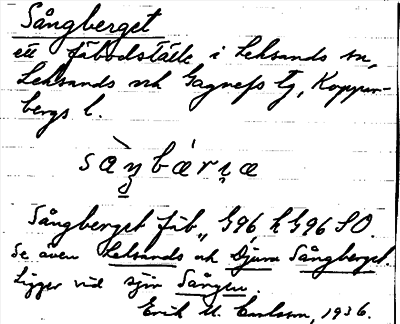 Sångberget
ett fäbodställe i Leksands sn,
Leksands och Gagnefs tg, Koppar-
bergs l.
sàŋbárɳæ
Sångberget fäb., G96 h G96 SO.
Se även Leksands och Djura Sångberget.
Ligger vid sjön Sången.
Erik M. Carlsson, 1936.